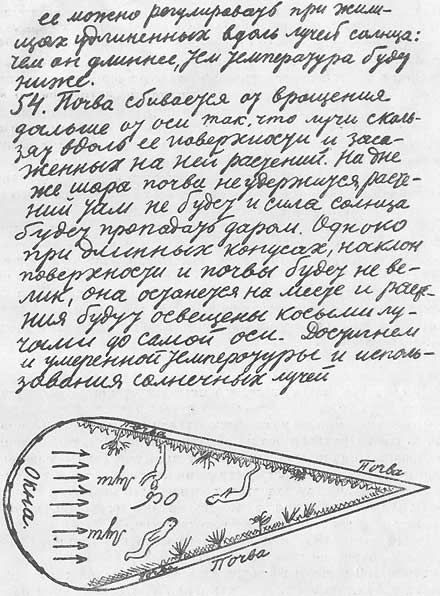 ее можно регулировать при жили-
щах удлиненных вдоль лучей солнца:
чем он длиннее, тем температура буде
ниже.
54. Почва сбивается от вращения
дальше от оси так, что лучи сколь-
зят вдоль ее поверхности и заса-
женных на ней растений. На дне
же шара почва не удержится, расте-
ний там не будет и сила солнца
будет пропадать даром. Однако
при длинных конусах, наклон
поверхности и почвы будет не ве-
лик, она останется на месте и расте-
ния будут освещены косыми лу-
чами до самой оси. Достигнем
и умеренной температуры и исполь-
зования солнечных лучей
Почва
Окна.
Лучи
Лучи
Ось
Почва
Почва
Почва